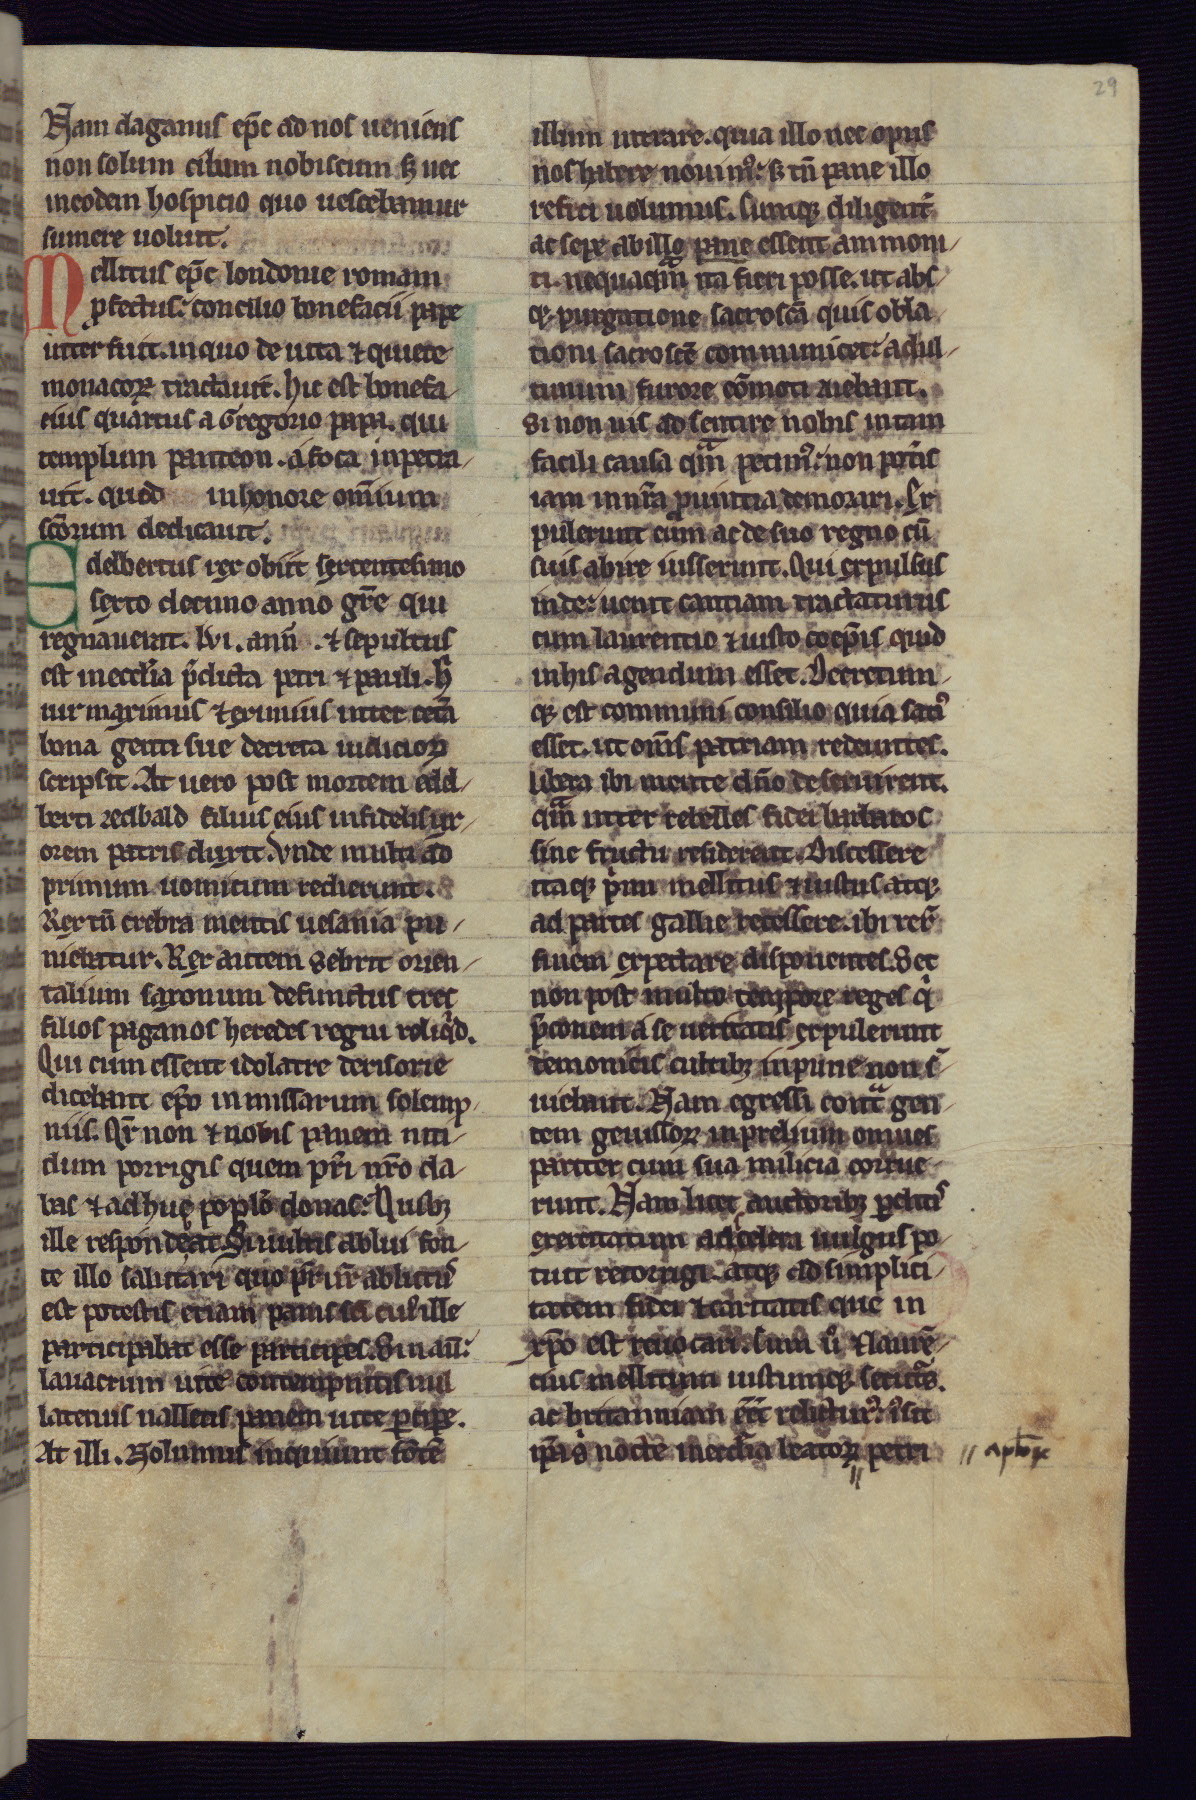 29
Nam daganus ep̄c ad nos ueniens
non solum cibum nobiscum sꝫ nec
ineodem hospicio quo uescebamur
sumere uoluit.
Mellitus ep̄c londonie romam
ꝓfectus: concilio bonefacii pape
interfuit. inquo de uita ⁊ quiete
monacoꝝ tractauit. hic est bonefa
cius quartus a Gregorio papa. qui
templum panteon. a foca inpetra/
uit. quod inhonore om̄ium
sc̄orum dedicauit.
Edelbertus rex obiit sexcentesimo
sexto decimo anno gr̄e qui
regnauerat. lvi. ann̄. ⁊ sepultus
est ineccl̄ia p̄dicta petri ⁊ pauli. h̄
uir maximus ⁊ eximius inter cet̄a
bona genti sue decreta iudicioꝝ
scripsit. At uero post mortem edel/
berti redbald filius eius infidelis ux/
orem patris duxit. Vnde multi ad
primum uomitum redierunt.
Rex tn̄ crebra mentis uesania pu/
niebatur. Rex autem sebrit orien/
talium saxonum defunctus tres
filios paganos heredes regni reliqͥd.
Qui cum essent idolatre derisorie
dicebant ep̄o in missarum solemp/
niis. Qr̄ non ⁊ nobis panem niti/
dum porrigis quem pr̄i nr̄o da/
bas ⁊ adhuc poplo donas: Quibꝫ
ille respondeat. Si uultis ablui fon/
te illo salutari quo pr̄ ur̄ ablutus
est potestis etiam panis sc̄i cuiꝰ ille
participabat esse participes. Sin au̅:
lauacrum uite contempnitis nul
latenus ualletis panem uite ꝑcipe.
At illi. Nolumus inquiunt fōtē
illum intrare. quia illo nec opus
nos habere nouimꝰ: sꝫ tn̄ pane illo
refici uolumus. Cumqꝫ diligent̄
ac sepe abillo pane essent ammoni/
ti. nequaqͣm ita fieri posse. ut abs
qꝫ purgatione sacrosc̄a quis obla
tioni sacrosc̄e communicet: ad ul/
timum furore cōmoti aiebant.
Si non uis ad sentire nobis intam
facili causa qͣm petimꝰ: non pot̄is
iam in nr̄a ꝓuintia demorari. Ex
pulerunt eum ac de suo regno cū
suis abire iusserunt. Qui expulsus
inde: uenit cantiam tractaturus
cum laurentio ⁊ iusto coep̄is quid
inhis agendum esset. Decretum/
qꝫ est communi consilio quia satiꝰ
esset. ut om̄s patriam redeuntes.
libera ibi mente dn̄o deseruirent.
qͣm inter rebelles fidei barbaros
sine fructu residerent. Discessere
itaqꝫ pͥmi mellitus ⁊ iustus atqꝫ
ad partes gallie recessere. ibi rer̄
finem expectare disponentes. Set
non post multo tempore reges qͥ
p̄conem a se ueritatis expulerunt
demonicis cultibꝫ inpune non s̄/
uiebant. Nam egressi contͣ gen/
tem geuissoꝝ inprelium omnes
pariter cum sua milicia corrue/
runt. Nam licet auctoribꝫ ꝑditis
exercitatum ad scelera uulgus po
tuit recorrigi. atqꝫ ad simplici/
tatem fidei ⁊ caritatis que in
xp̄o est reuocari. Cum ū laurē/
cius mellitum iustumqꝫ secutꝰ.
ac britanniam eēt relicturꝰ: iussit
ip̄a nocte ineccl̄ia beatoꝝ petri // aplōꝝ